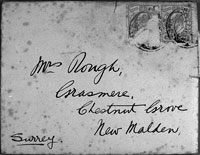 Mrs Rough,
Grasmere,
Chestnut Grove
New Malden,
Surrey